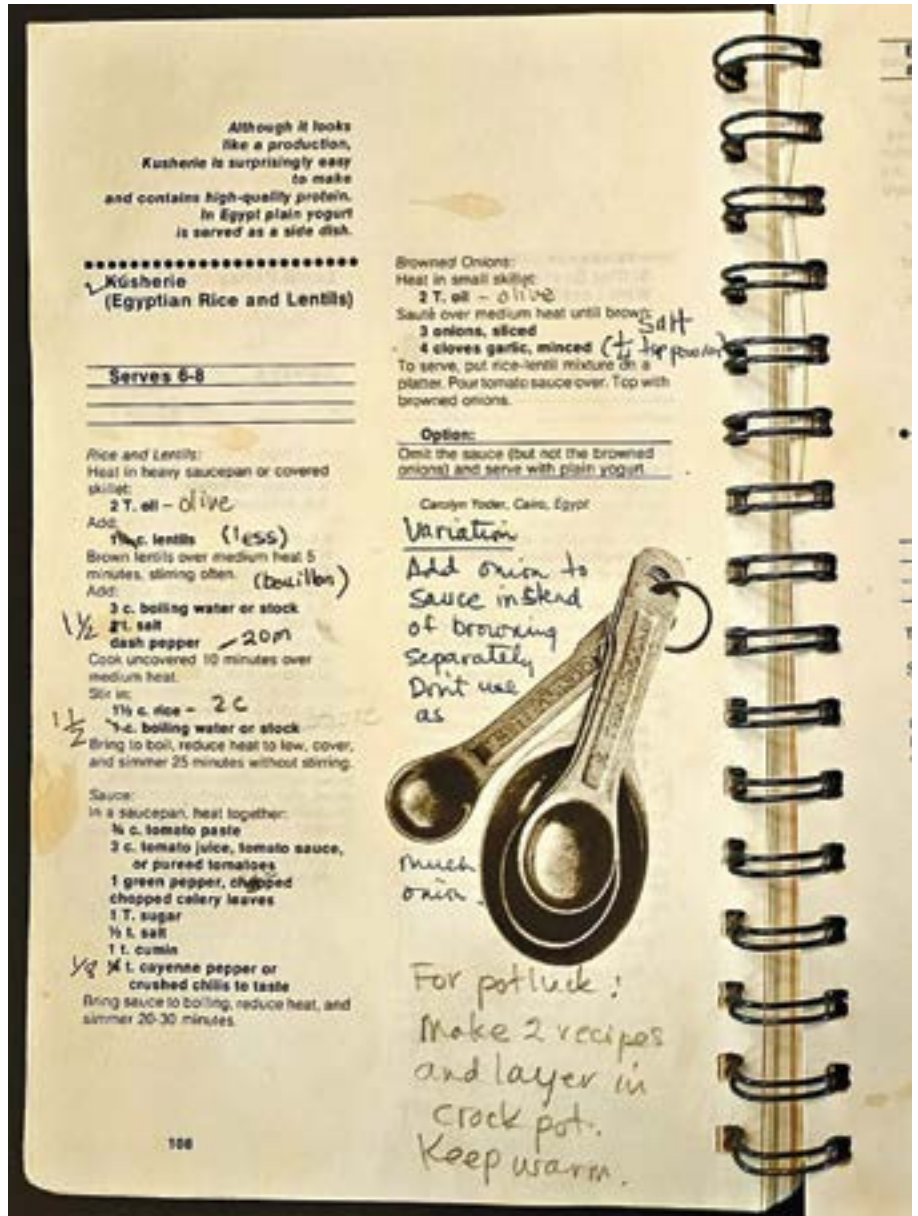 Although it looks
like a production,
Kusherie is surprisingly easy
to make
and contains high-quality protein.
In Egypt plain yogurt
is served as a side dish.
Kusherie
(Egyptian Rice and Lentils)
Serves 6-8
Rice and Lentils:
Heat in heavy saucepan or covered
skillet:
2 T. oil – olive
Add:
c. lentils (less)
Brown lentils over medium heat 5
minutes, stirring often. (bouillon)
Add:
3 c. boiling water or stock
1½ t. salt
dash pepper – 20m
Cook uncovered 10 minutes over
medium heat.
Stir in:
1½ c. rice – 2 c
1½ c. boiling water or stock
Bring to boil, reduce heat to low, cover,
and simmer 25 minutes without stirring.
Sauce:
In a saucepan, heat together:
¾ c. tomato paste
3 c. tomato juice, tomato sauce,
or pureed tomatoes
1 green pepper, chopped
chopped celery leaves
1 T. sugar
½ t. salt
1 t. cumin
1/8 ¼ t. cayenne pepper or
crushed chilis to taste
Bring sauce to boiling, reduce heat, and
simmer 20-30 minutes.
108
Browned Onions:
Heat in small skillet:
2 T. oil – olive
Sauté over medium heat until brown:
3 onions, sliced Salt
4 cloves garlic, minced (¼ tsp powder)
To serve, put rice-lentil mixture on a
platter. Pour tomato sauce over. Top with
browned onions.
Option:
Omit the sauce (but not the browned
onions) and serve with plain yogurt.
Carolyn Yoder, Cairo, Egypt
Variation
Add onion to
sauce instead
of browning
separately
Don't use
as
much
onion.
For potluck:
Make 2 recipes
and layer in
crock pot.
Keep warm.